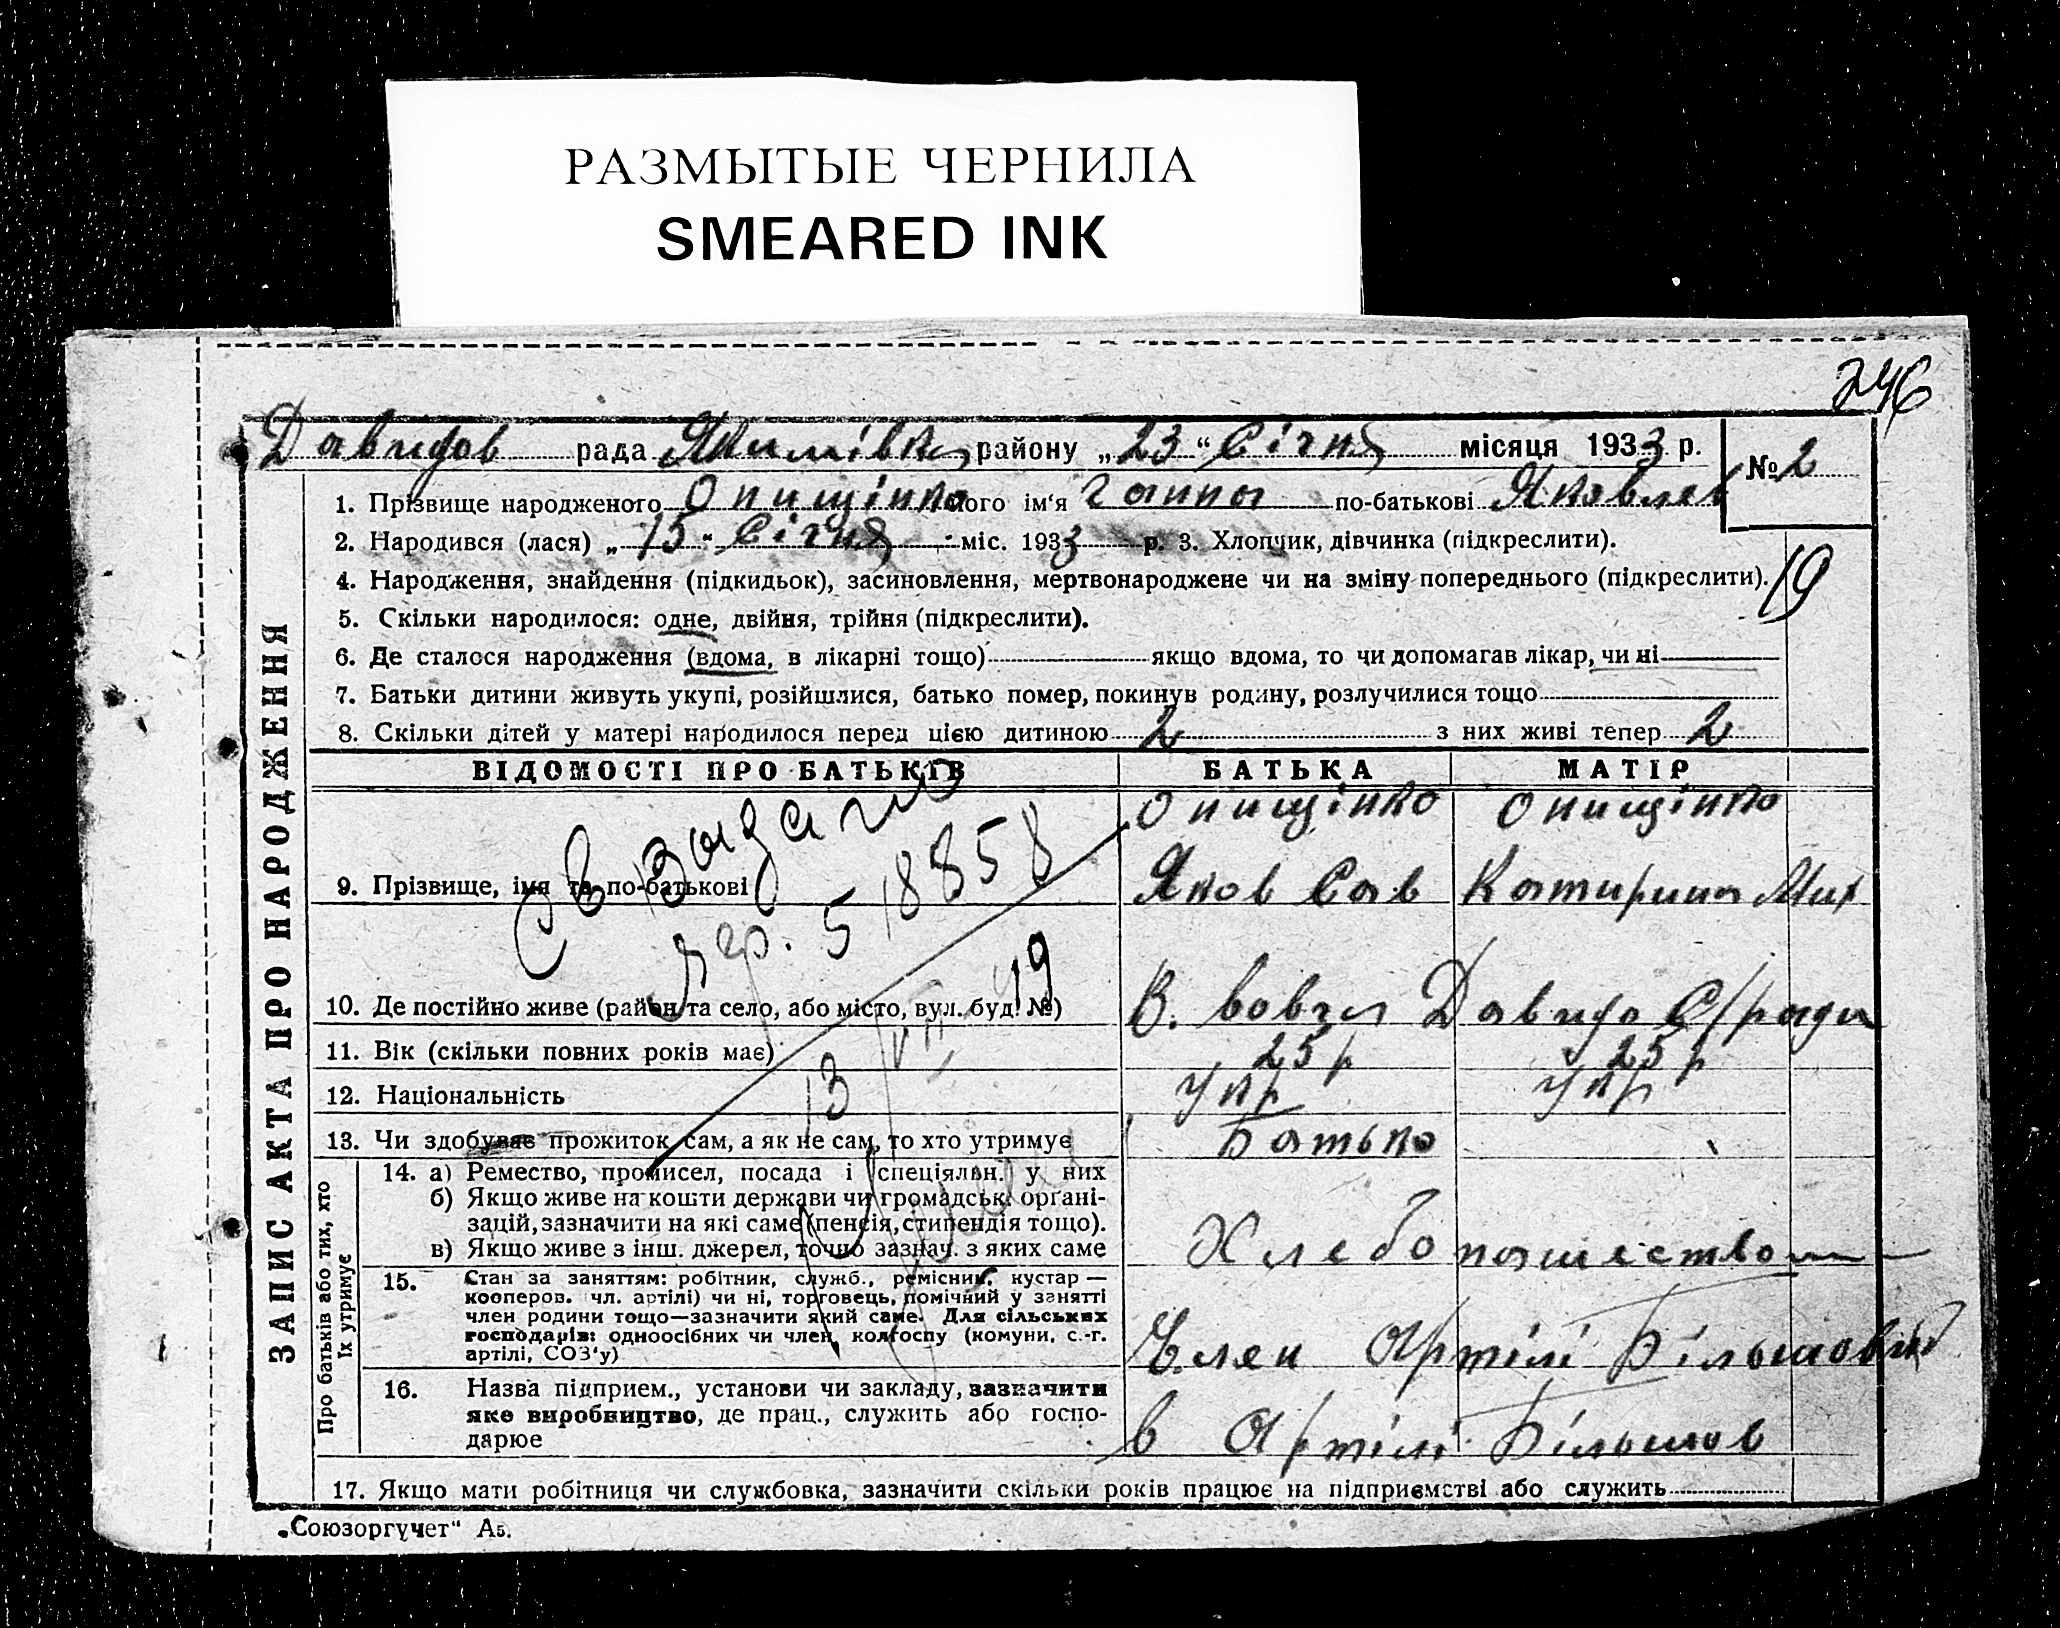 РАЗМЫТЫЕ ЧЕРНИЛА
SMEARED INK
246
Давидов рада Якимівка району „23“ Січня місяця 1933 р. № 2
1. Прізвище народженого Онищінко його ім'я Ганна по-батькові Яковлев
2. Народився (лася) „15“ Січня міс. 1933 р. 3. Хлопчик, дівчинка (підкреслити).
4. Народження, знайдення (підкидьок), засиновлення, мертвонароджене чи на зміну попереднього (підкреслити).
19
5. Скільки народилося: одне, двійня, трійня (підкреслити).
6. Де сталося народження (вдома, в лікарні тощо) якщо вдома, то чи допомагав лікар, чи ні
7. Батьки дитини живуть укупі, розійшлися, батько помер, покинув родину, розлучилися тощо
8. Скільки дітей у матері народилося перед цією дитиною 2 з них живі тепер 2
ЗАПИС АКТА ПРО НАРОДЖЕННЯ
ВІДОМОСТІ ПРО БАТЬКІВ БАТЬКА МАТІР
Онищінко Онищінко
9. Прізвище, імя та по-батькові Яков Сав Катирина Мих
518858
10. Де постійно живе (район та село, або місто, вул. буд. №) Давидо С/рада
11. Вік (скільки повних років має) 25 р 25 р
12. Національність Укр Укр
13. Чи здобуває прожиток сам, а як не сам, то хто утримує Батько
Про батьків або тих, хто їх утримує
14. а) Ремество, промисел, посада і спеціяльн. у них
б) Якщо живе на кошти держави чи громадськ. органі-
зацій, зазначити на які саме (пенсія, стипендія тощо).
в) Якщо живе з інш. джерел, точно зазнач. з яких саме Хлебопашество
15. Стан за заняттям: робітник, служб., ремісник, кустар —
кооперов. чл. артілі) чи ні, торговець, помічний у занятті
член родини тощо—зазначити який саме. Для сільських
господарів: одноосібних чи член колгоспу (комуни, с.-г.
артілі, СОЗ'у) Член Артілі Більшовік
16. Назва підприєм., установи чи закладу, зазначити
яке виробництво, де прац., служить або госпо-
дарює в Артілі Більшов
17. Якщо мати робітниця чи службовка, зазначити скільки років працює на підприємстві або служить
„Союзоргучет“ А5.